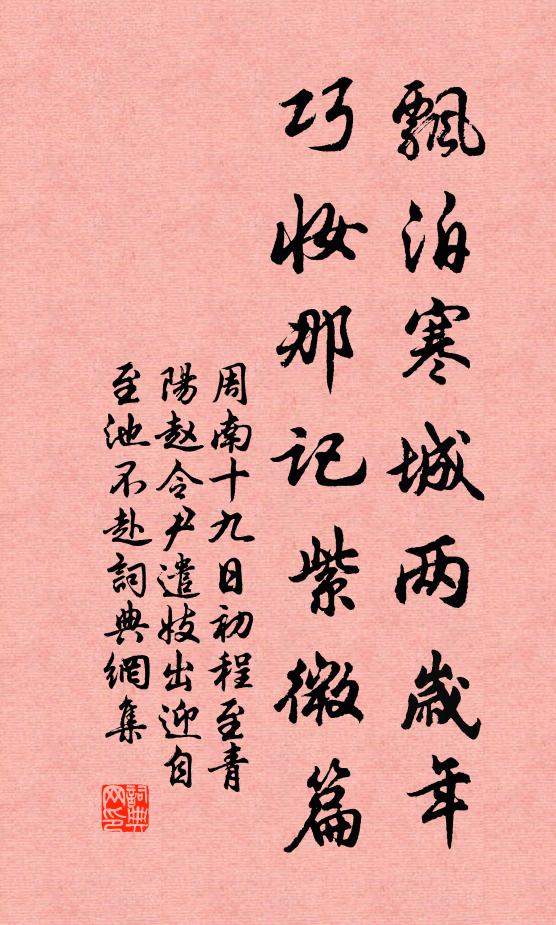 飄泊寒城两歲年
巧妝那记紫微篇
周南十九日初程至青
陽赵令尹遣妓出迎自
至池不赴詞典網集
詞典网印